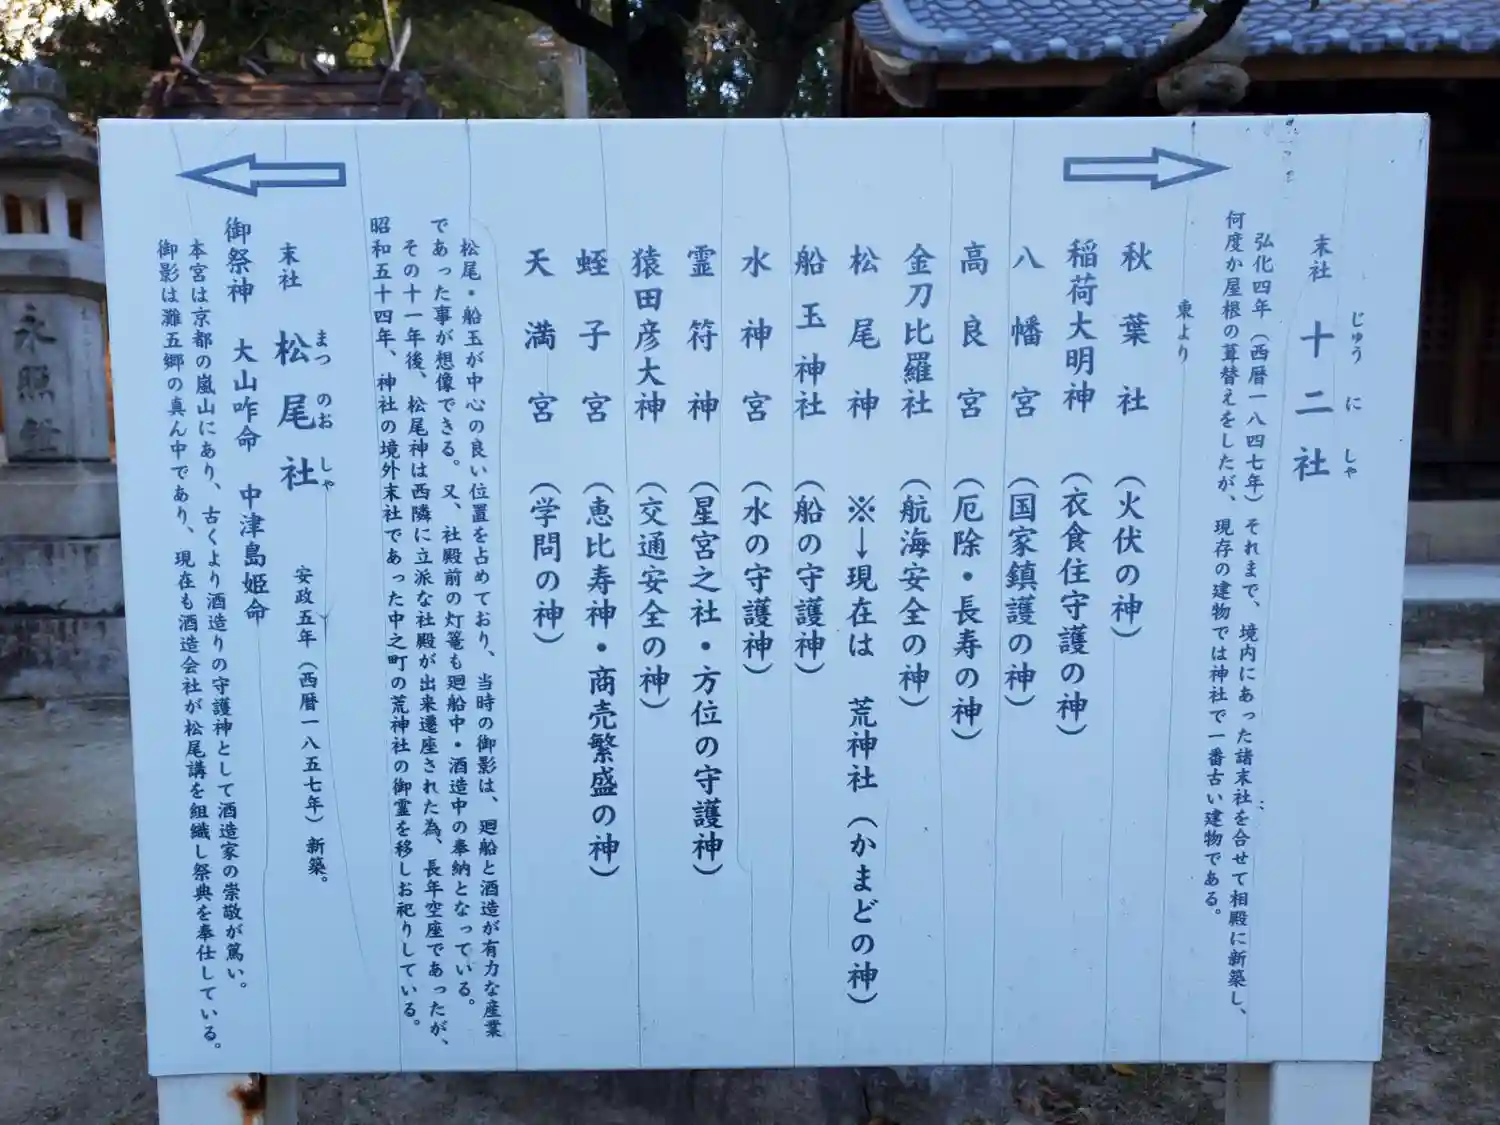 末社 十二社
じゅう に しゃ
弘化四年（西暦一八四七年）それまで、境内にあった諸末社を合せて相殿に新築し、
何度か屋根の葺替えをしたが、現存の建物では神社で一番古い建物である。
東より
秋葉社（火伏の神）
稲荷大明神（衣食住守護の神）
八幡宮（国家鎮護の神）
高良宮（厄除・長寿の神）
金刀比羅社（航海安全の神）
松尾神 ※→現在は 荒神社（かまどの神）
船玉神社（船の守護神）
水神宮（水の守護神）
霊符神（星宮之社・方位の守護神）
猿田彦大神（交通安全の神）
蛭子宮（恵比寿神・商売繁盛の神）
天満宮（学問の神）
松尾・船玉が中心の良い位置を占めており、当時の御影は、廻船と酒造が有力な産業
であった事が想像できる。又、社殿前の灯篭も廻船中・酒造中の奉納となっている。
その十一年後、松尾神は西隣に立派な社殿が出来遷座された為、長年空座であったが、
昭和五十四年、神社の境外末社であった中之町の荒神社の御霊を移しお祀りしている。
末社 松尾社 安政五年（西暦一八五七年）新築。
まつ のお しゃ
御祭神 大山咋命 中津島姫命
本宮は京都の嵐山にあり、古くより酒造りの守護神として酒造家の崇敬が篤い。
御影は灘五郷の真ん中であり、現在も酒造会社が松尾講を組織し祭典を奉仕している。
永照